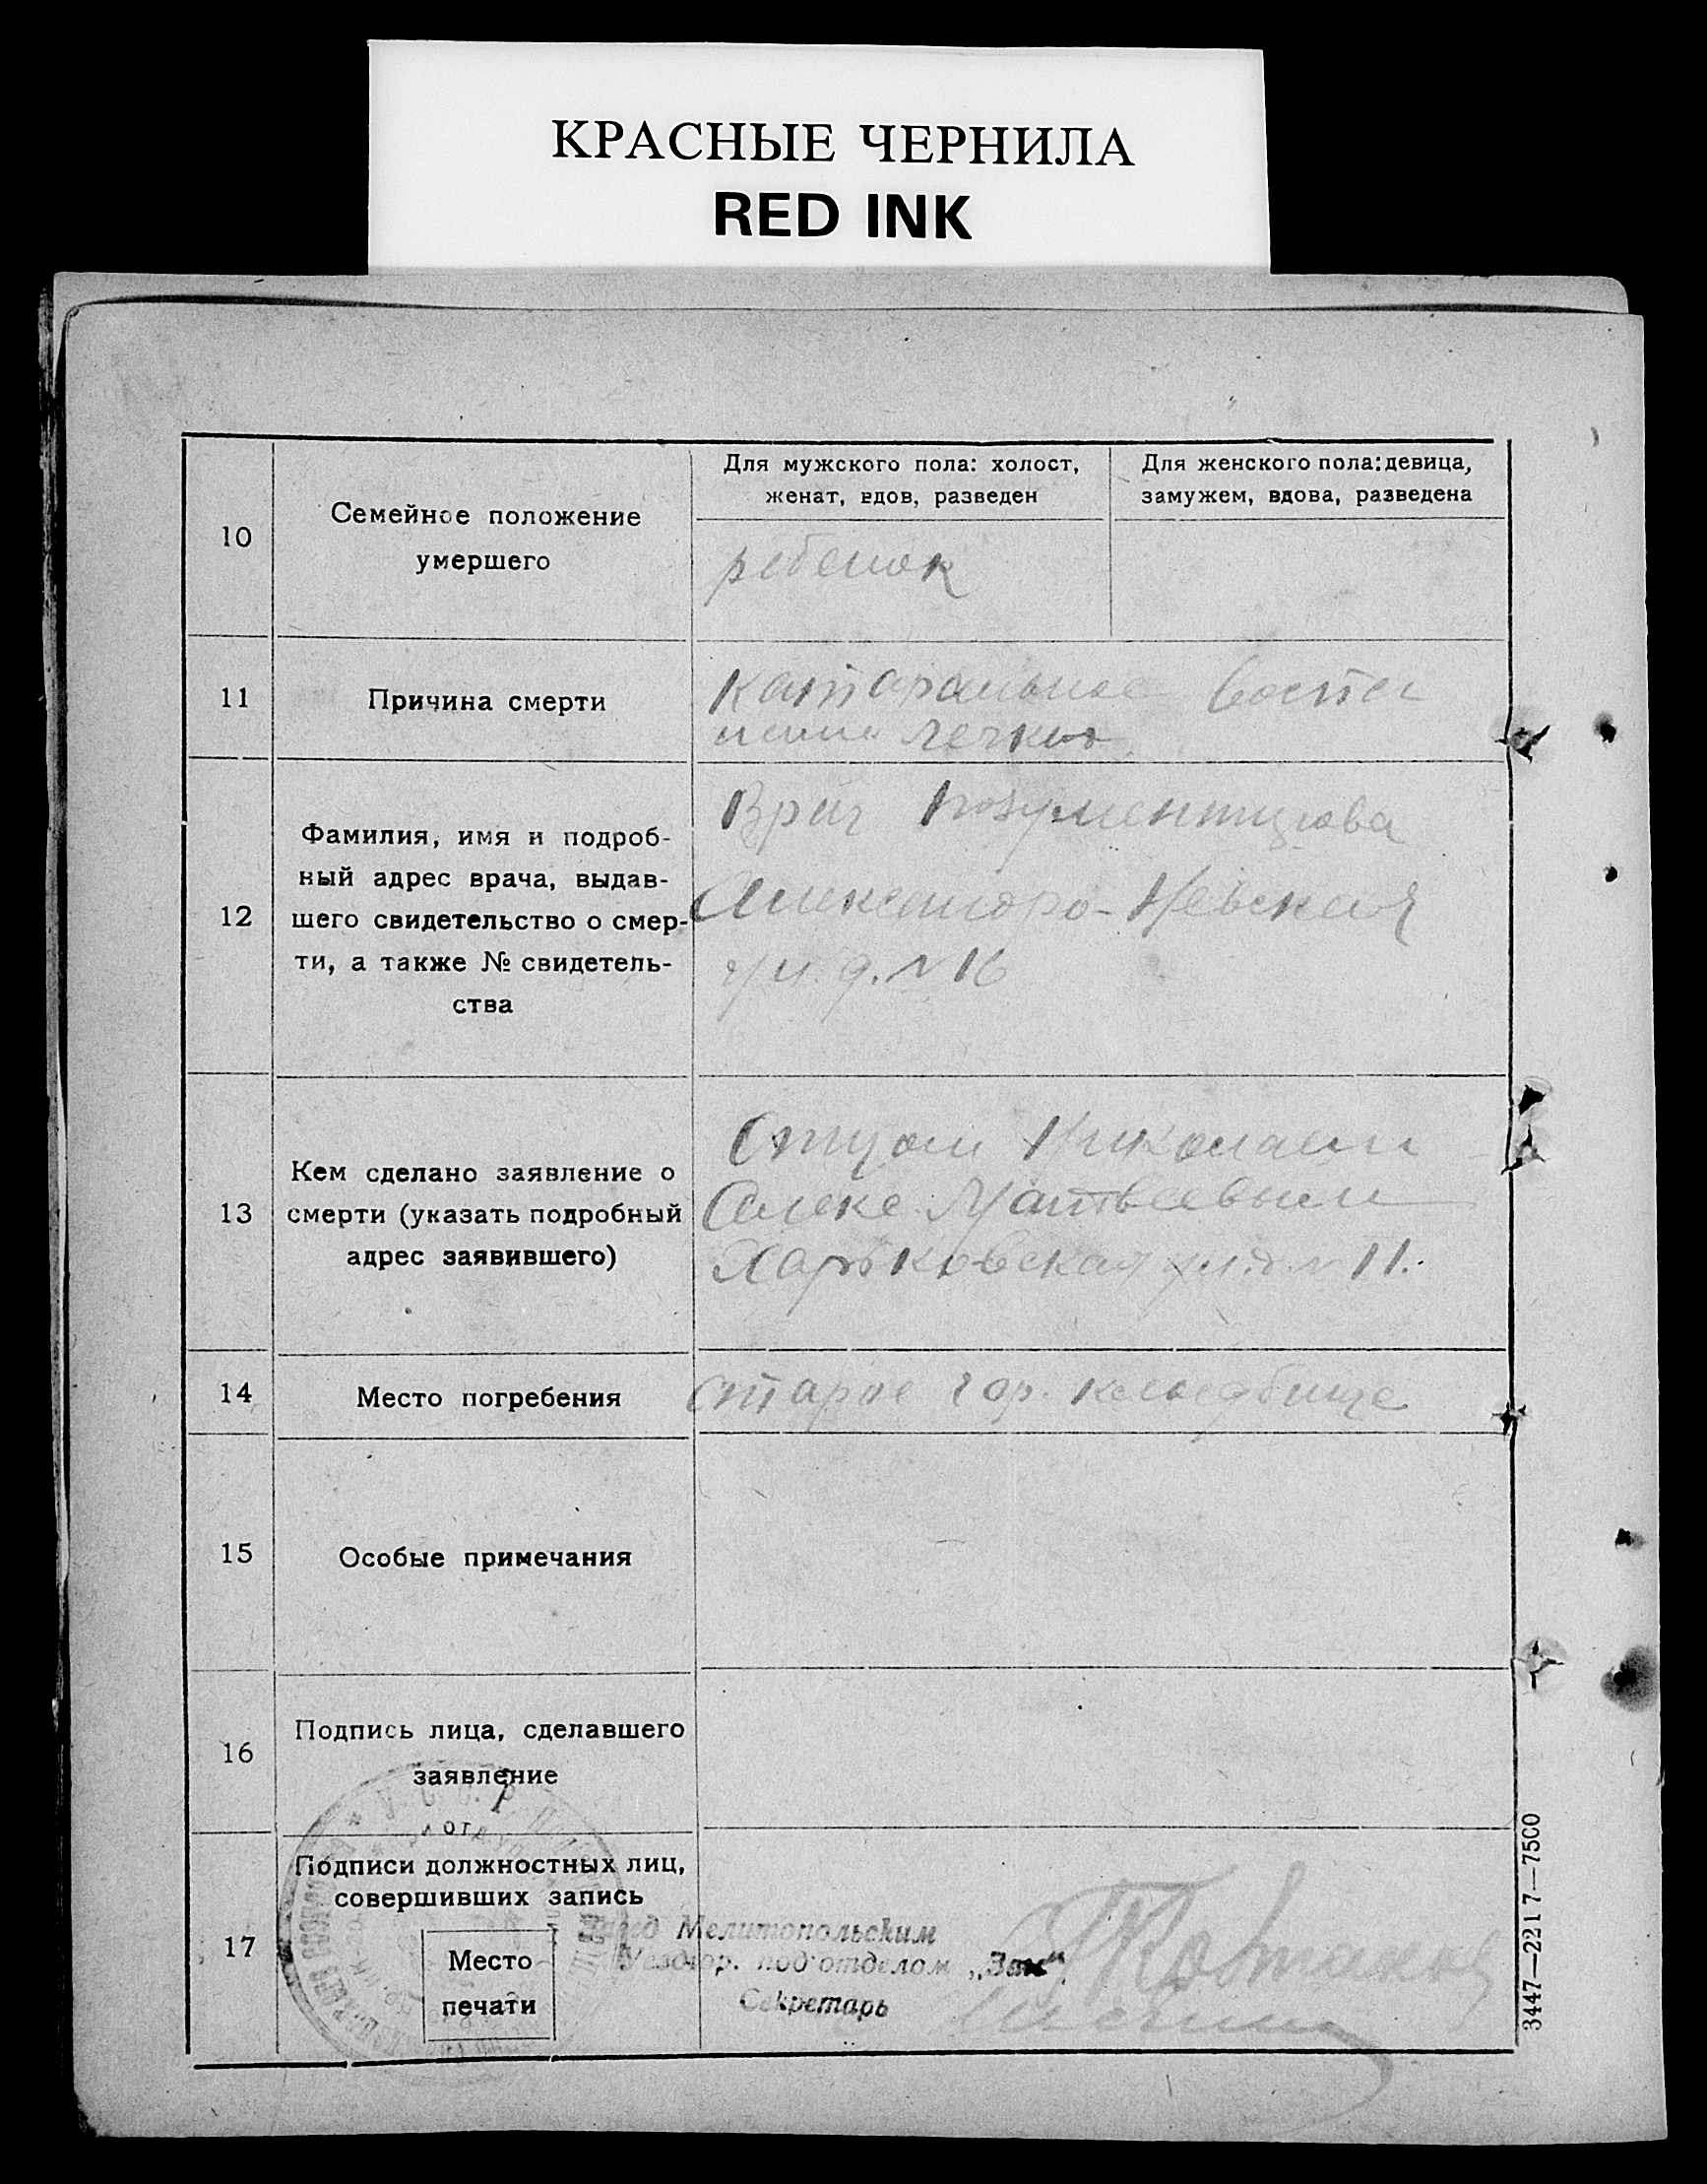 КРАСНЫЕ ЧЕРНИЛА
RED INK
10
Семейное положение
умершего
Для мужского пола: холост,
женат, вдов, разведен
Для женского пола: девица,
замужем, вдова, разведена
ребенок
11
Причина смерти
Катаральное воспа
ление легких
12
Фамилия, имя и подроб-
ный адрес врача, выдав-
шего свидетельство о смер-
ти, а также № свидетель-
ства
Врач Позументщикова
Александро-Невская
ул. д. № 16
13
Кем сделано заявление о
смерти (указать подробный
адрес заявившего)
Отцом Николаем
Алекс. Матвеевым
Харьковская ул. д. № 11.
14
Место погребения
Старое гор. кладбище
15
Особые примечания
16
Подпись лица, сделавшего
заявление
17
Подписи должностных лиц,
совершивших запись
Место
печати
Завед Мелитопольским
Уездгор. под'отделом „Загс"
Секретарь
3447—2217—7500